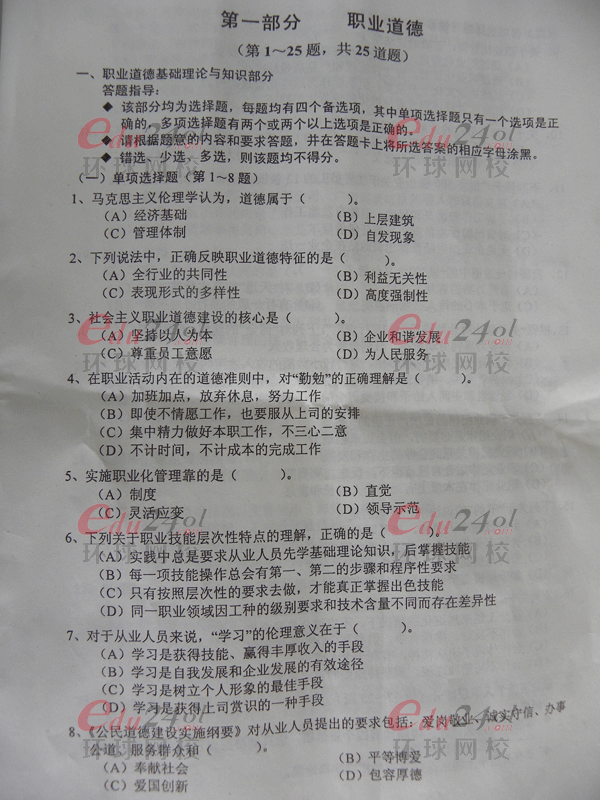 第一部分 职业道德
（第 1～25 题，共 25 道题）
一、职业道德基础理论与知识部分
答题指导：
◆ 该部分均为选择题，每题均有四个备选项，其中单项选择题只有一个选项是正
确的，多项选择题有两个或两个以上选项是正确的。
◆ 请根据题意的内容和要求答题，并在答题卡上将所选答案的相应字母涂黑。
◆ 错选、少选、多选，则该题均不得分。
（一）单项选择题（第 1～8 题）
1、马克思主义伦理学认为，道德属于（ ）。
（A）经济基础 （B）上层建筑
（C）管理体制 （D）自发现象
2、下列说法中，正确反映职业道德特征的是（ ）。
（A）全行业的共同性 （B）利益无关性
（C）表现形式的多样性 （D）高度强制性
3、社会主义职业道德建设的核心是（ ）。
（A）坚持以人为本 （B）企业和谐发展
（C）尊重员工意愿 （D）为人民服务
4、在职业活动内在的道德准则中，对“勤勉”的正确理解是（ ）。
（A）加班加点，放弃休息，努力工作
（B）即使不情愿工作，也要服从上司的安排
（C）集中精力做好本职工作，不三心二意
（D）不计时间，不计成本的完成工作
5、实施职业化管理靠的是（ ）。
（A）制度 （B）直觉
（C）灵活应变 （D）领导示范
6、下列关于职业技能层次性特点的理解，正确的是（ ）。
（A）实践中总是要求从业人员先学基础理论知识，后掌握技能
（B）每一项技能操作总会有第一、第二的步骤和程序性要求
（C）只有按照层次性的要求去做，才能真正掌握出色技能
（D）同一职业领域因工种的级别要求和技术含量不同而存在差异性
7、对于从业人员来说，“学习”的伦理意义在于（ ）。
（A）学习是获得技能、赢得丰厚收入的手段
（B）学习是自我发展和企业发展的有效途径
（C）学习是树立个人形象的最佳手段
（D）学习是获得上司赏识的一种手段
8、《公民道德建设实施纲要》对从业人员提出的要求包括：爱岗敬业、诚实守信、办事
公道、服务群众和（ ）。
（A）奉献社会 （B）平等博爱
（C）爱国创新 （D）包容厚德
edu24ol
环球网校
edu24ol
环球网校
edu24ol
环球网校
edu24ol
环球网校
edu24ol
环球网校
edu24ol
环球网校
edu24ol
环球网校
edu24ol
环球网校